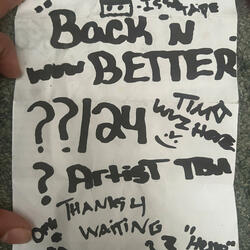 Back 'N
BETTER
??/24
TIMA
WUZ HERE
? Artist TBA
THANKS 4
WAITING